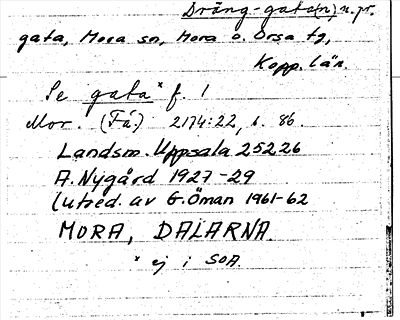 Dräng-gata(n) n. pr.
gata, Mora sn, Mora o. Orsa tg,
Kopp. län.
Se gata* f. 1
Mor. (Få.) 2174:22, s. 86.
Landsm. Uppsala 25226
A. Nygård 1927-29
(utred. av G. Öman 1961-62
MORA, DALARNA.
* ej i SOA.